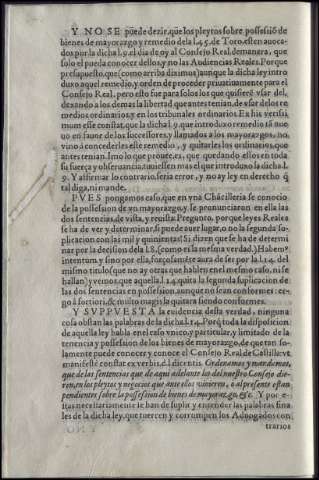 Y NO SE puede dezir, que los pleytos sobre possessiõ de
bienes de mayorazgo, y remedio de la l. 45. de Toro, esten auoca-
dos, por la dicha l. 9. el dia de oy al Consejo Real, de manera, que
solo el pueda conocer dellos, y no las Audiencias Reales. Porque
presupuesto, que (como arriba diximos) aunque la dicha ley intro
duxo aquel remedio, y orden de proceder priuatiuamente para el
Consejo Real, pero esto fue para solos los que quisierẽ vsar del,
dexando a los demas la libertad que antes tenian, de vsar de los re
medios ordinarios, y en los tribunales ordinarios. Ex his verissi
mum esse constat, que la dicha l. 9. que introduxo remedio tã nue
uo en fauor de los successores, y llamados a los mayorazgos, no
vino a concederles este remedio, y quitarles los ordinarios, que
antes tenian. Imo lo que proueyò es, que quedando ellos en toda
su fuerça y obseruancia, tuuiessen mas el que introduxo la dicha l.
9. Y affirmar lo contrario, seria error, y no ay ley en derecho q̃
tal diga, ni mande.
PVES pongamos caso, que en vna Chãcilleria se conocio
de la possession de vn mayorazgo, y se pronunciaron en ella las
dos sentencias, de vista, y reuista. Pregunto, por que leyes Reales
se ha de ver y determinar, si puede auer lugar, o no la segunda su-
plicacion con las mil y quinientas? Si dizen que se ha de determi
nar por la decision de la l. 8. (como es la mesma verdad.) Habemᵒ
intentum, y sino por ella, forçosamẽte aura de ser por la l. 14. del
mismo titulo (que no ay otras que hablen en el mesmo caso, ni se
hallan) y vemos, que aquella l. 14. quita la segunda suplicacion de
las dos sentencias en possession, aunque no sean conformes: er-
gò à fortiori, & multo magis la quitara siendo conformes.
Y SVPPVESTA la euidencia desta verdad, ninguna
cosa obstan las palabras de la dicha l. 14. Porq̃ toda la disposicion
de aquella ley habla en el caso vnico, y particular, y limitado de la
tenencia y possession de los bienes de mayorazgo, de que tan so-
lamente puede conocer y conoce el Consejo Real de Castilla: vt
manifestè constat ex verbis, d. l. dicentis. Ordenamos y mandamos,
que de las sentencias que de aqui adelante los del nuestro Consejo die-
ren, en los pleytos y negocios que ante ellos vinieren, o al presente estan
pendientes sobre la possession de bienes de mayorazgo, &c. Y por e-
stas necessariamente se han de suplir y entender las palabras fina
les de la dicha ley, que tuercen y corrumpen los Aduogados con
trarios